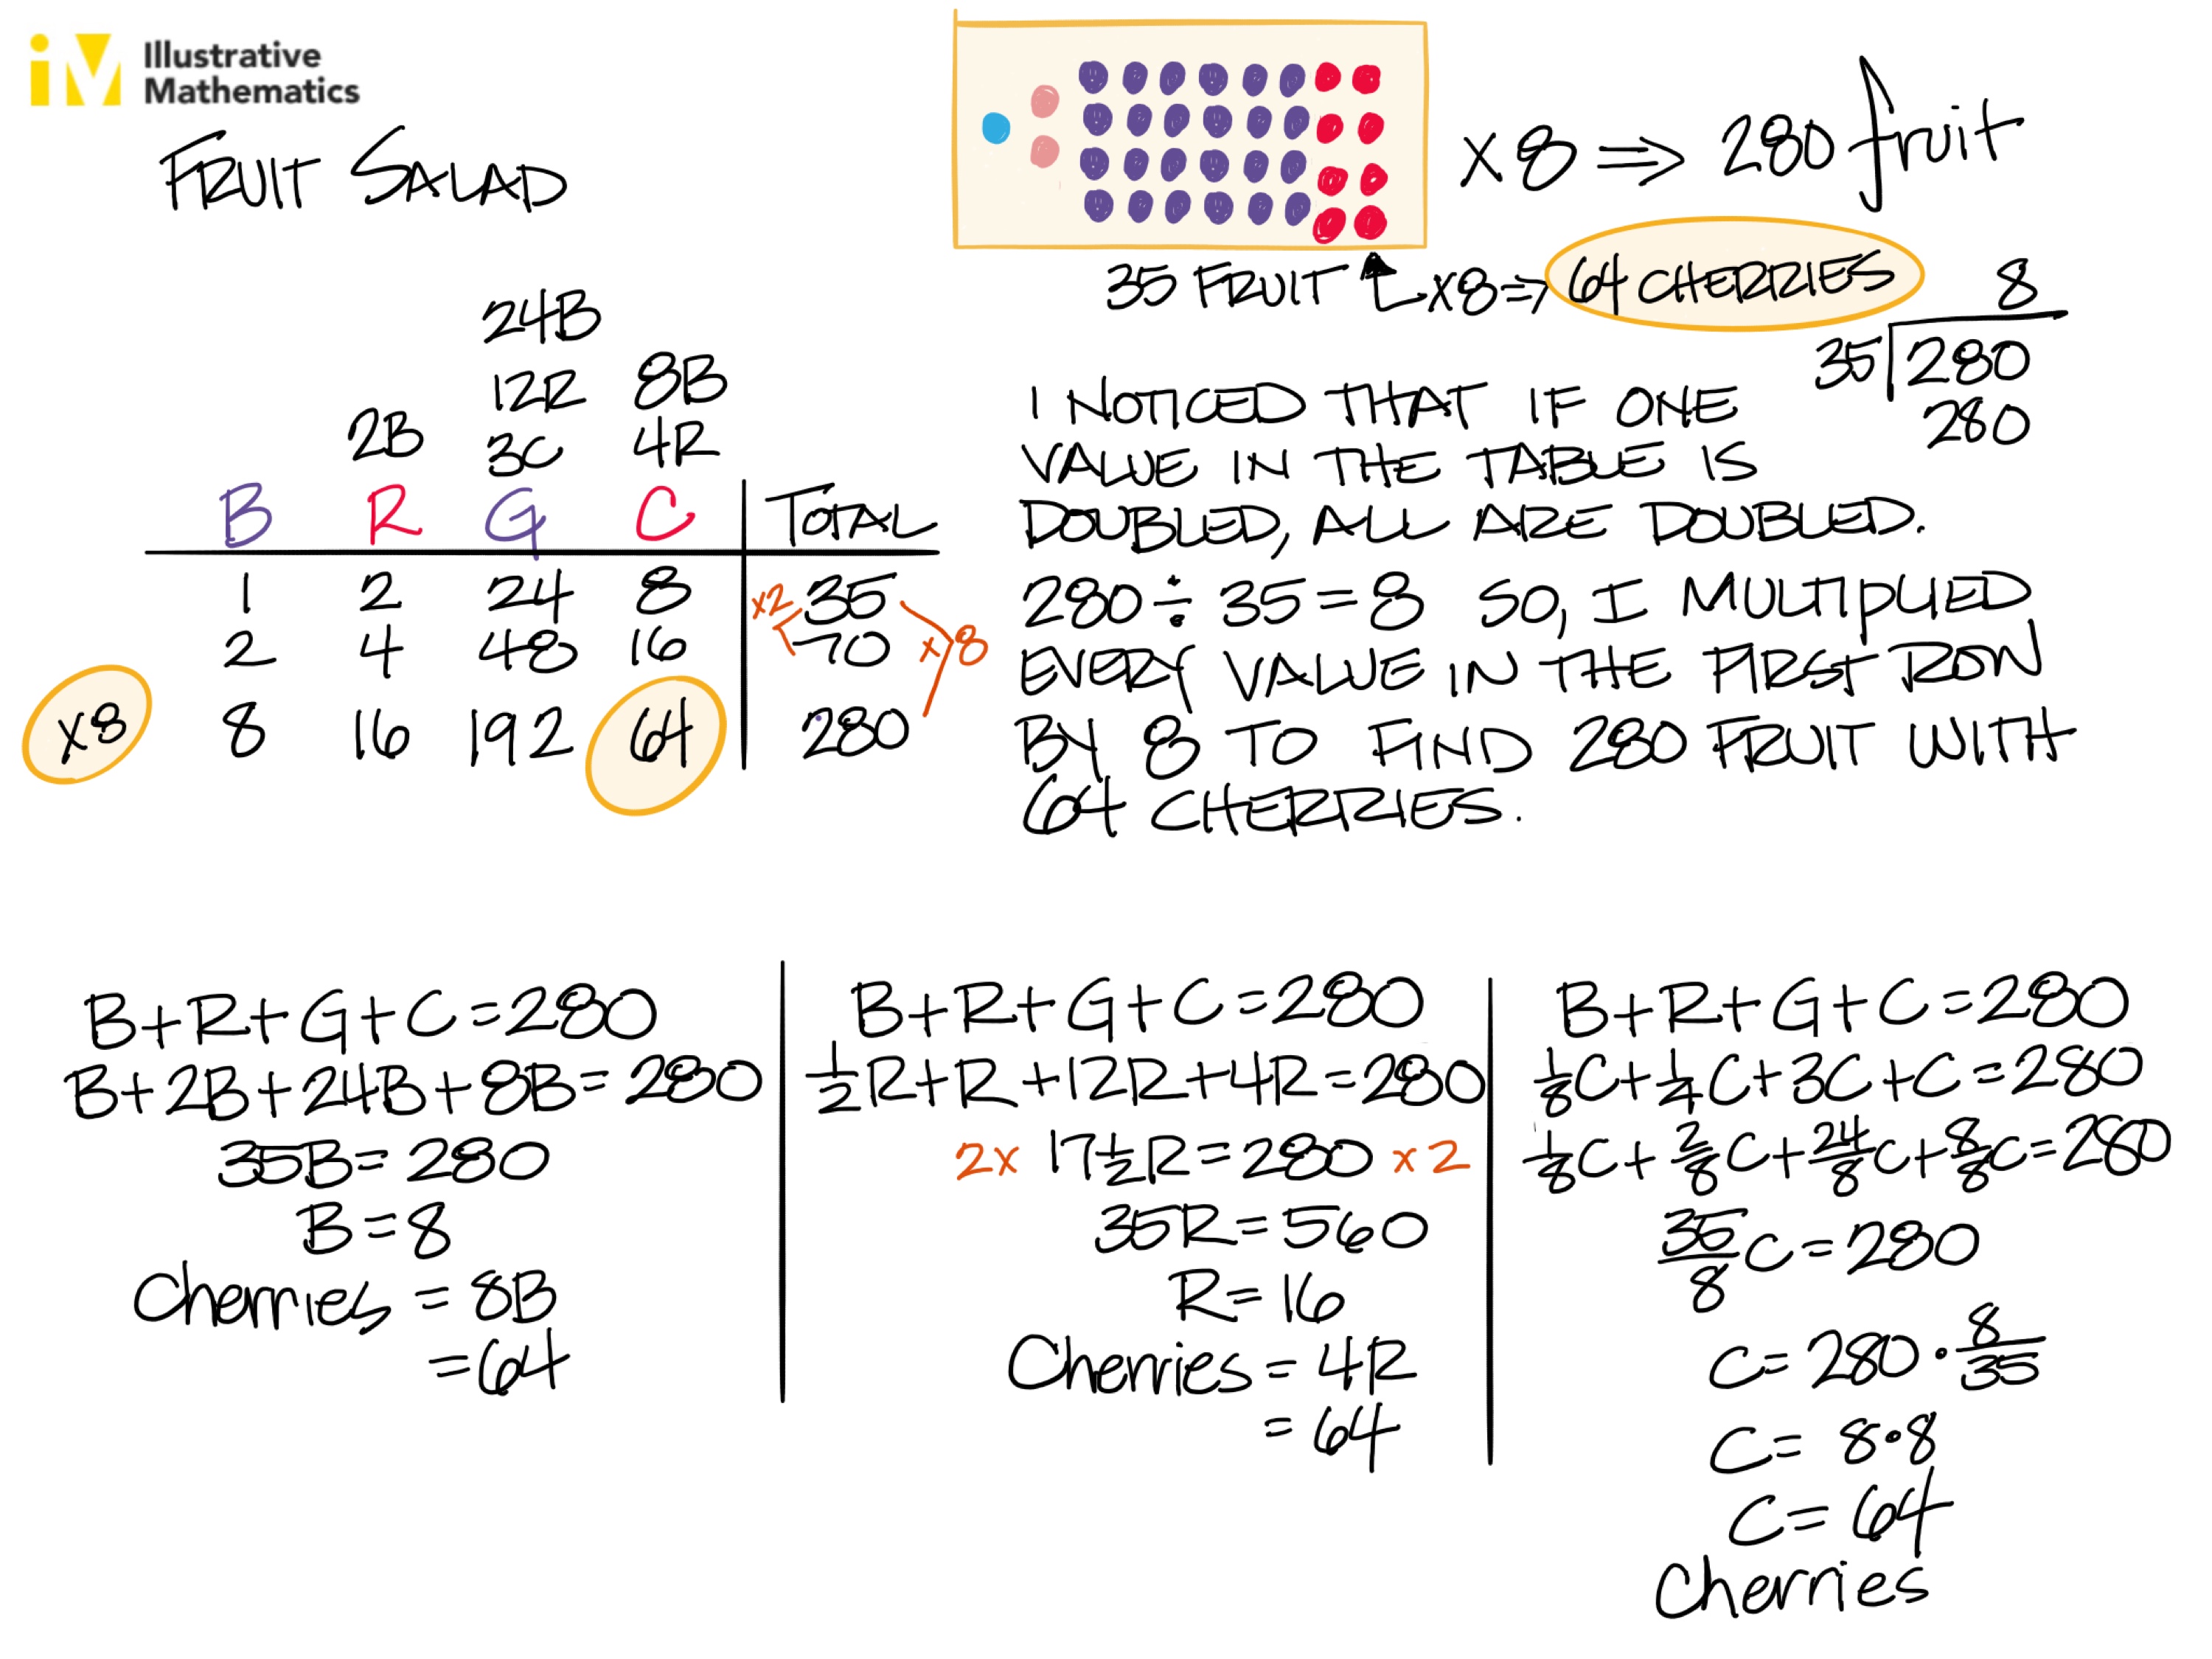 Illustrative
Mathematics
FRUIT SALAD
x8 ⇒ 280 fruit
35 FRUIT x8 ⇒ 64 CHERRIES
8
35 280
280
24B
12R 8B
2B 3C 4R
B R G C TOTAL
1 2 24 8 x2 35
2 4 48 16 70 x8
x8 8 16 192 64 280
I NOTICED THAT IF ONE
VALUE IN THE TABLE IS
DOUBLED, ALL ARE DOUBLED.
280 ÷ 35 = 8 SO, I MULTIPLIED
EVERY VALUE IN THE FIRST ROW
BY 8 TO FIND 280 FRUIT WITH
64 CHERRIES.
B+R+G+C=280
B+2B+24B+8B=280
35B=280
B=8
Cherries = 8B
=64
B+R+G+C=280
1/2R+R+12R+4R=280
2x 17 1/2R=280 x2
35R=560
R=16
Cherries = 4R
= 64
B+R+G+C=280
1/8C+1/4C+3C+C=280
1/8C+2/8C+24/8C+8/8C=280
35/8C=280
C=280·8/35
C=8·8
C=64
Cherries